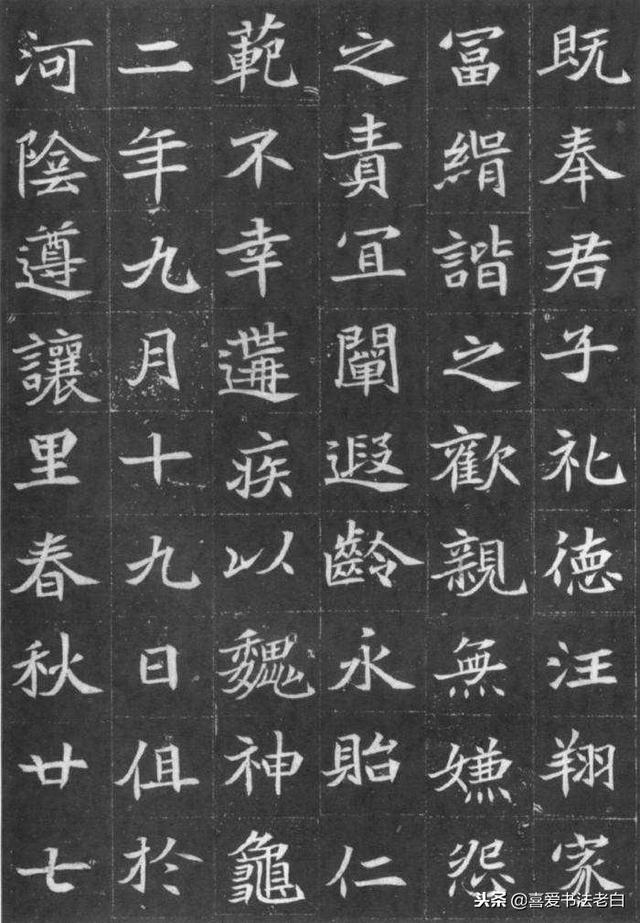 既奉君子礼德汪翔家
冨緝諧之歡親無嫌怨
之責宜闡遐齡永貽仁
範不幸遘疾以魏神龜
二年九月十九日徂於
河陰遵讓里春秋廿七
头条 @喜爱书法老白